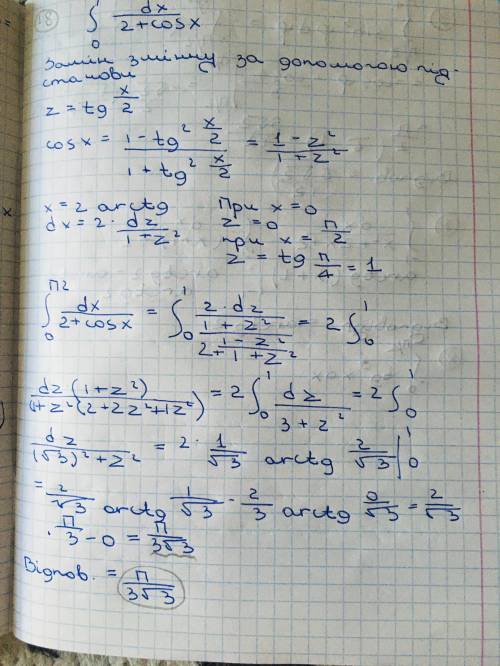 18) ∫₀¹ dx / (2 + cos x)
Замін змінну за допомогою під-
станови
z = tg x/2
cos x = (1 - tg² x/2) / (1 + tg² x/2) = (1 - z²) / (1 + z²)
x = 2 arctg При x = 0
dx = 2 · dz / (1 + z²) z = 0
при x = π/2
z = tg π/4 = 1
∫₀^π2 dx / (2 + cos x) = ∫₀¹ (2 · dz / (1 + z²)) / (2 + (1 - z²) / (1 + z²)) = 2 ∫₀¹
dz (1 + z²) / (1 + z² (2 + 2z² + 1z²) = 2 ∫₀¹ dz / (3 + z²) = 2 ∫₀¹
dz / ((√3)² + z²) = 2 · 1/√3 arctg z/√3 |₀¹
= 2/√3 arctg 1/√3 - 2/3 arctg 0/√3 = 2/√3
· π/3 - 0 = π / 3√3
Відпов. = π / 3√3